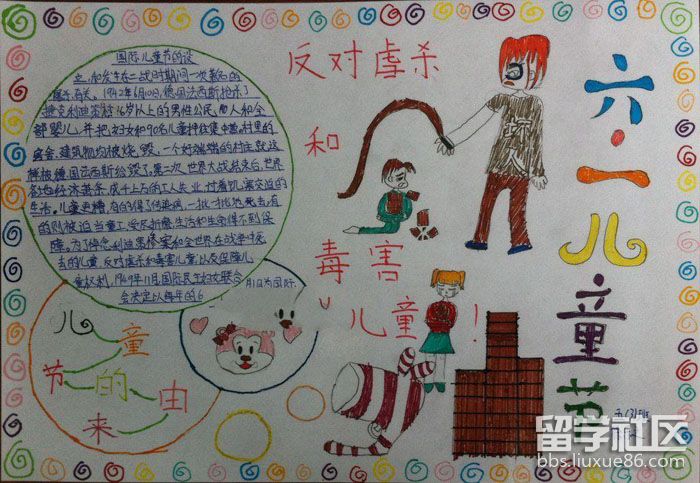 国际儿童节的设
立,和发生在二战时期间一次著名的
屠杀有关。1942年6月10日,德国法西斯枪杀了
捷克利迪策村16岁以上的男性公民,
全
部婴儿,并把妇女和90名儿童押往集中营。村里的
房舍、建筑物均被烧毁,一个好端端的村庄就这
样被德国法西斯给毁了。第二次世界大战结束后,世界
各地经济萧条,成千上万的工人失业,过着饥寒交迫的
生活。儿童更糟,有的得了传染病,一批一批地死去;有
的则被迫当童工,受尽折磨,生活和生命得不到保
障。为了悼念利迪策惨案和全世界在战争中死
去的儿童,反对虐杀和毒害儿童,以及保障儿
童权利,1949年11月国际民主妇女联合
会决定以每年的6
月1日为国际
儿童节的由来
反对虐杀
和
毒害
儿童!
坏人
六·一儿童节
留学社区
bbs.liuxue86.com